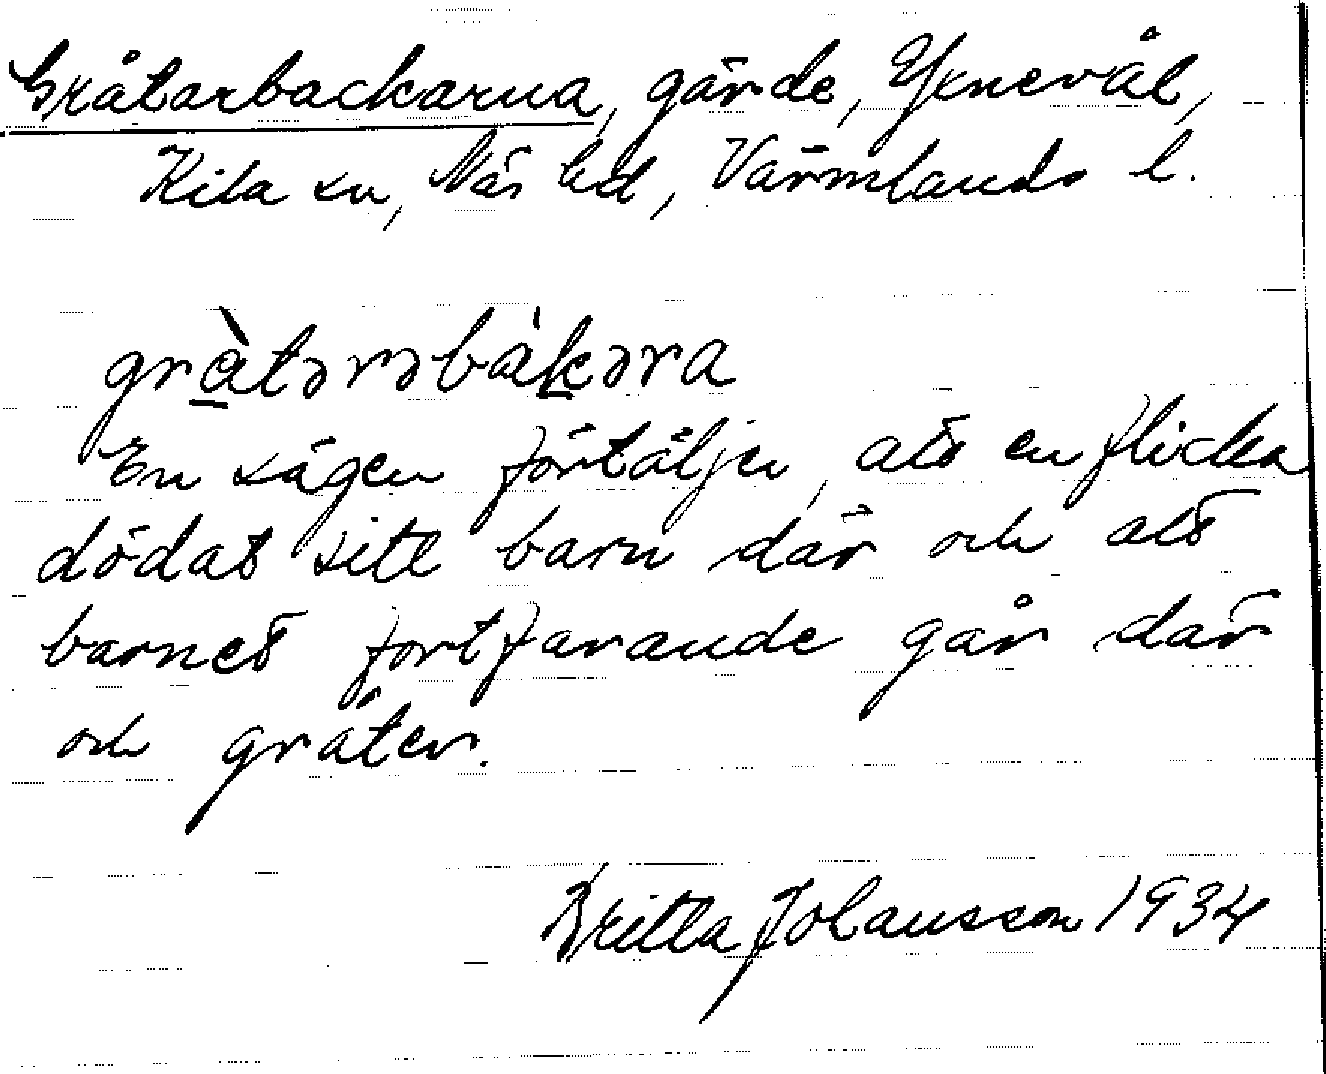 Gråtarbackarna, gärde, Yxnevål,
Kila sn, Näs hd, Värmlands l.
gràtərəbàkəra
En sägen förtäljer, att en flicka
dödat sitt barn där och att
barnet fortfarande går där
och gråter.
Britta Johansson 1934